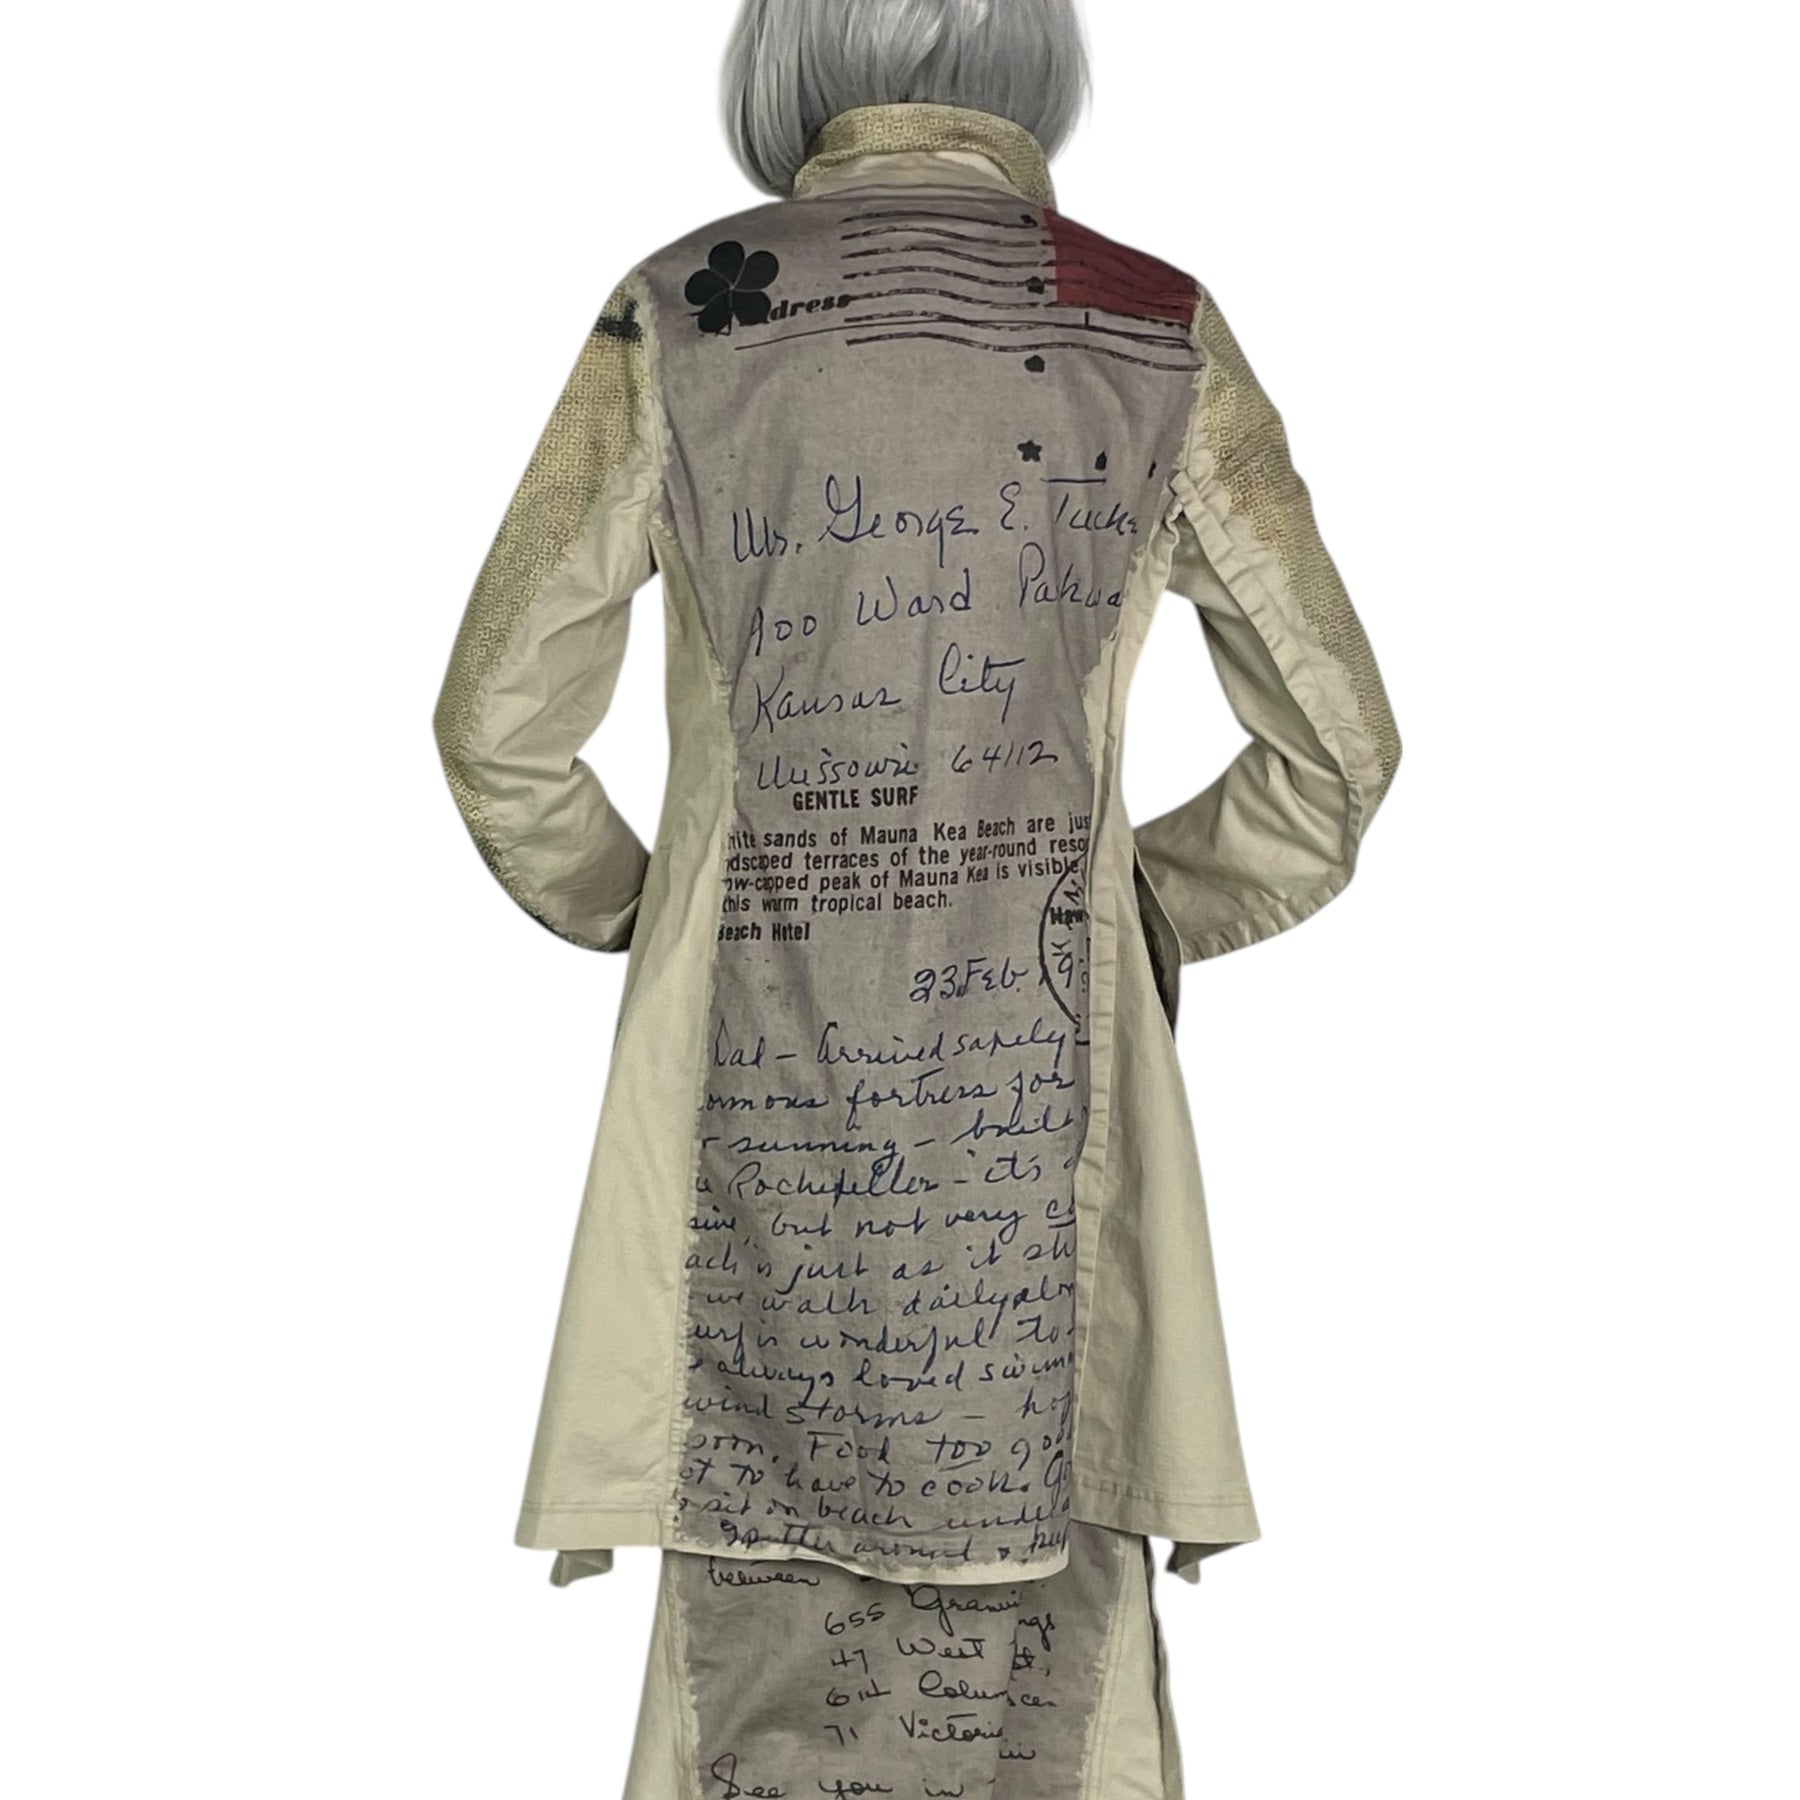 dress
Mr. George E. Tucke
900 Ward Pakwa
Kansas City
Missouri 64112
GENTLE SURF
hite sands of Mauna Kea Beach are jus
ndscaped terraces of the year-round reso
ow-capped peak of Mauna Kea is visible
this warm tropical beach.
Beach Hotel
Haw
23 Feb. 19
Dad - Arrived safely
ormous fortress for
r sunning - built
Rockefeller - it's
sive, but not very co
ach is just as it sh
we walk daily alon
urf is wonderful to
always loved swim
wind storms - hop
soon. Food too good
ot to have to cook. Go
sit on beach under
putter around &
between
655 Granvi
ngs
47 West
st.,
614 Colum
can
71 Victoria
See you in